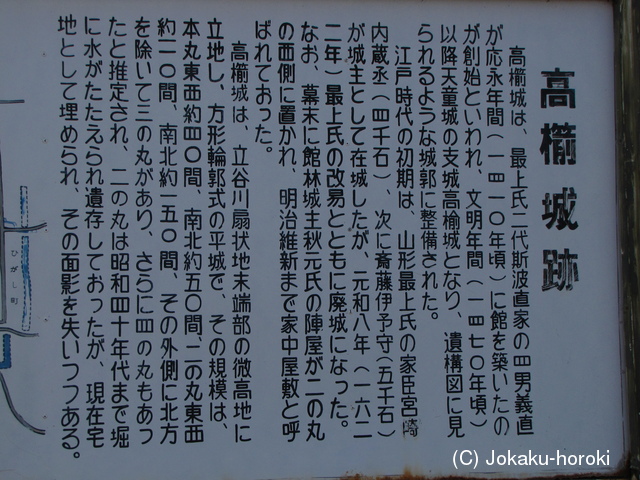 高櫤城跡
高櫤城は、最上氏二代斯波直家の四男義直
が応永年間(一四一〇年頃)に館を築いたの
が創始といわれ、文明年間(一四七〇年頃)
以降天童城の支城高楡城となり、遺構図に見
られるような城郭に整備された。
江戸時代の初期は、山形最上氏の家臣宮崎
内蔵丞(四千石)、次に斎藤伊予守(五千石)
が城主として在城したが、元和八年(一六二
二年)最上氏の改易とともに廃城になった。
なお、幕末に館林城主秋元氏の陣屋が二の丸
の西側に置かれ、明治維新まで家中屋敷と呼
ばれておった。
高櫤城は、立谷川扇状地末端部の微高地に
立地し、方形輪郭式の平城で、その規模は、
本丸東西約四〇間、南北約五〇間、二の丸東西
約一一〇間、南北約一五〇間、その外側に北方
を除いて三の丸があり、さらに四の丸もあっ
たと推定され、二の丸は昭和四十年代まで堀
に水がたたえられ遺存しておったが、現在宅
地として埋められ、その面影を失いつつある。
ひがし町
(C) Jokaku-horoki